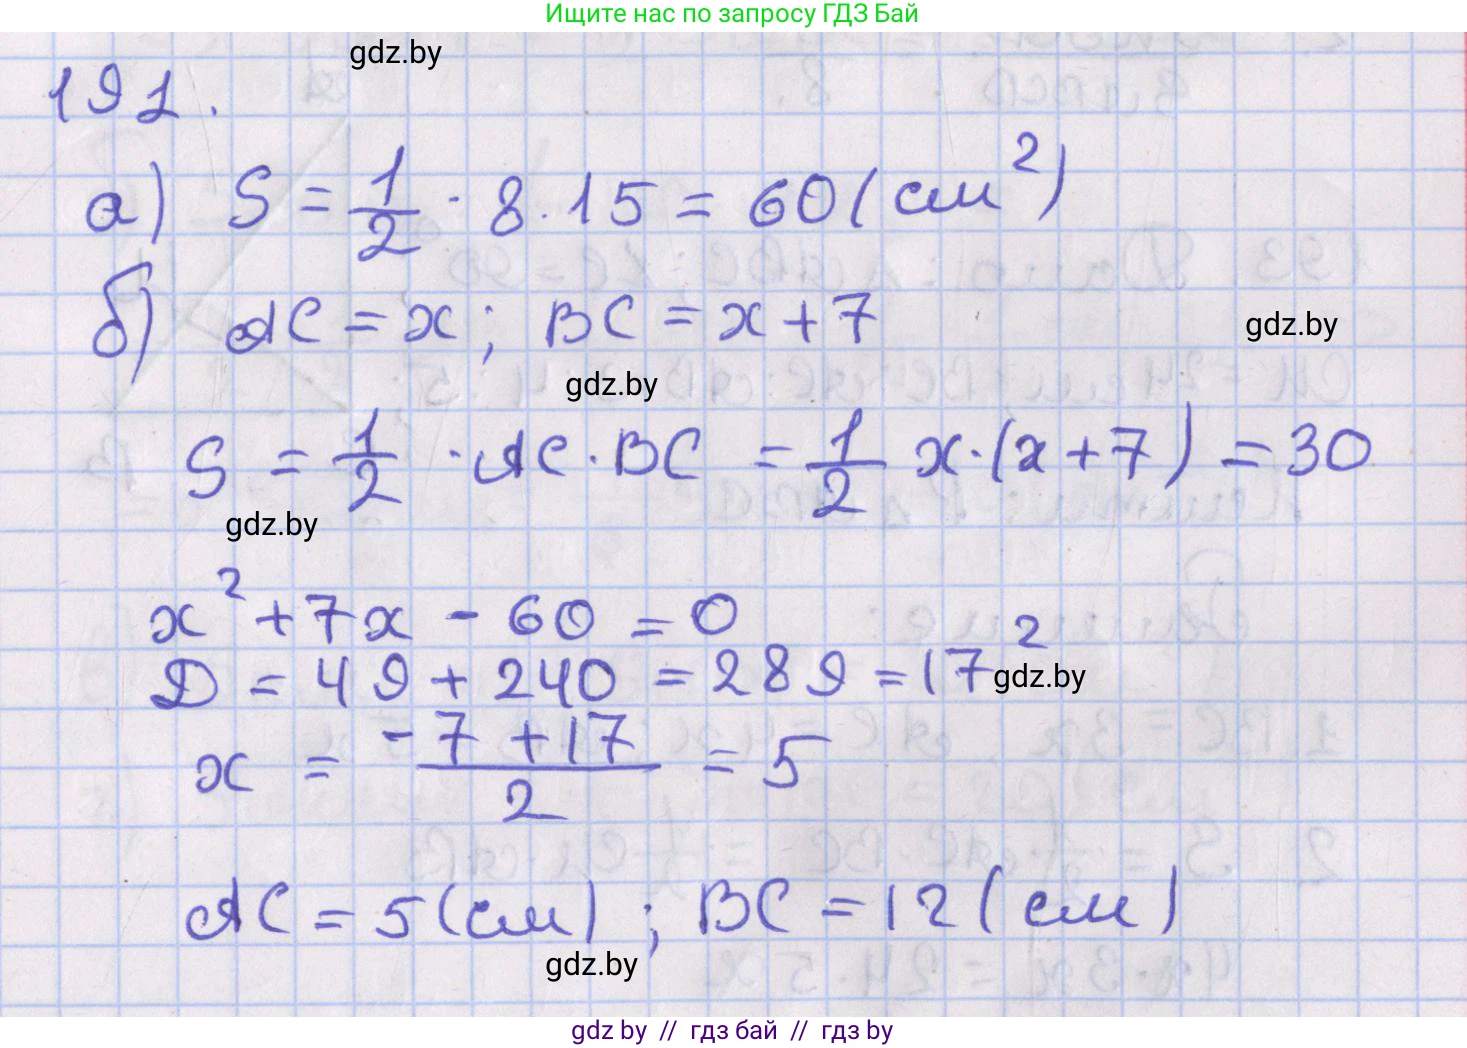 Ищите нас по запросу ГДЗ Бай
gdz.by
191.
а) S = 1/2 · 8 · 15 = 60 (см²)
б) AC = x; BC = x + 7
gdz.by
gdz.by
S = 1/2 · AC · BC = 1/2 x · (x + 7) = 30
gdz.by
x² + 7x - 60 = 0
D = 49 + 240 = 289 = 17²
gdz.by
x = (-7 + 17)/2 = 5
AC = 5 (см); BC = 12 (см)
gdz.by
gdz by // гдз бай // гдз by